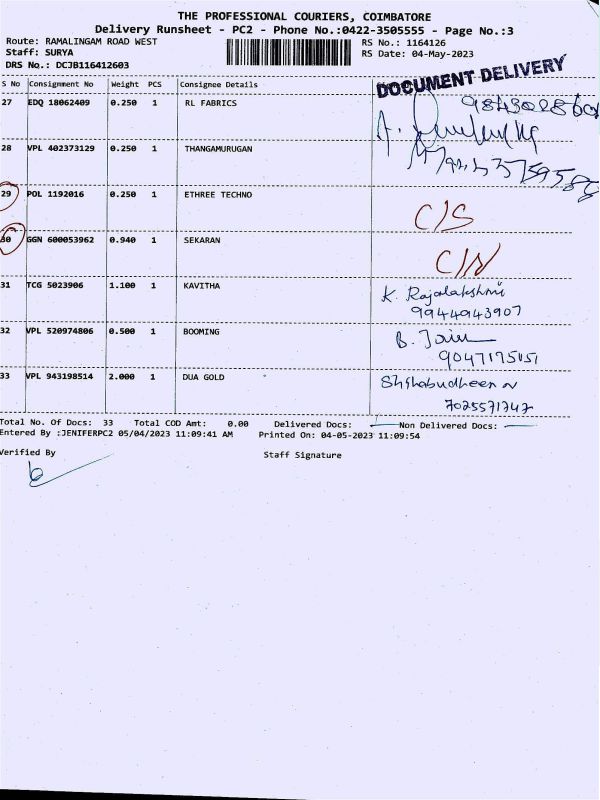 THE PROFESSIONAL COURIERS, COIMBATORE
Delivery Runsheet - PC2 - Phone No.:0422-3505555 - Page No.:3
Route: RAMALINGAM ROAD WEST RS No.: 1164126
Staff: SURYA RS Date: 04-May-2023
DRS No.: DCJB116412603
DOCUMENT DELIVERY
S No Consignment No Weight PCS Consignee Details
27 EDQ 18062409 0.250 1 RL FABRICS
28 VPL 402373129 0.250 1 THANGAMURUGAN
29 POL 1192016 0.250 1 ETHREE TECHNO C/S
30 GGN 600053962 0.940 1 SEKARAN C/N
31 TCG 5023906 1.100 1 KAVITHA K. Rajalakshmi
9944943907
32 VPL 520974806 0.500 1 BOOMING B. Jain
33 VPL 943198514 2.000 1 DUA GOLD Shihabudheen N
7025571747
Total No. Of Docs: 33 Total COD Amt: 0.00 Delivered Docs: Non Delivered Docs:
Entered By :JENIFERPC2 05/04/2023 11:09:41 AM Printed On: 04-05-2023 11:09:54
Verified By Staff Signature